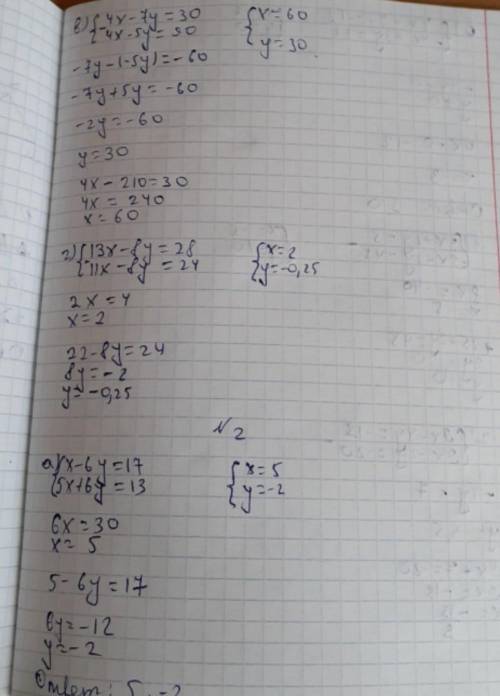 в) { 4x - 7y = 30
{ 4x - 5y = 90
{ x = 60
y = 30
-7y - (-5y) = -60
-7y + 5y = -60
-2y = -60
y = 30
4x - 210 = 30
4x = 240
x = 60
г) { 13x - 8y = 28
{ 11x - 8y = 24
{ x = 2
y = -0,25
2x = 4
x = 2
22 - 8y = 24
8y = -2
y = -0,25
№ 2
а) { x - 6y = 17
{ 5x + 6y = 13
{ x = 5
y = -2
6x = 30
x = 5
5 - 6y = 17
6y = -12
y = -2
Ответ: 5, -2